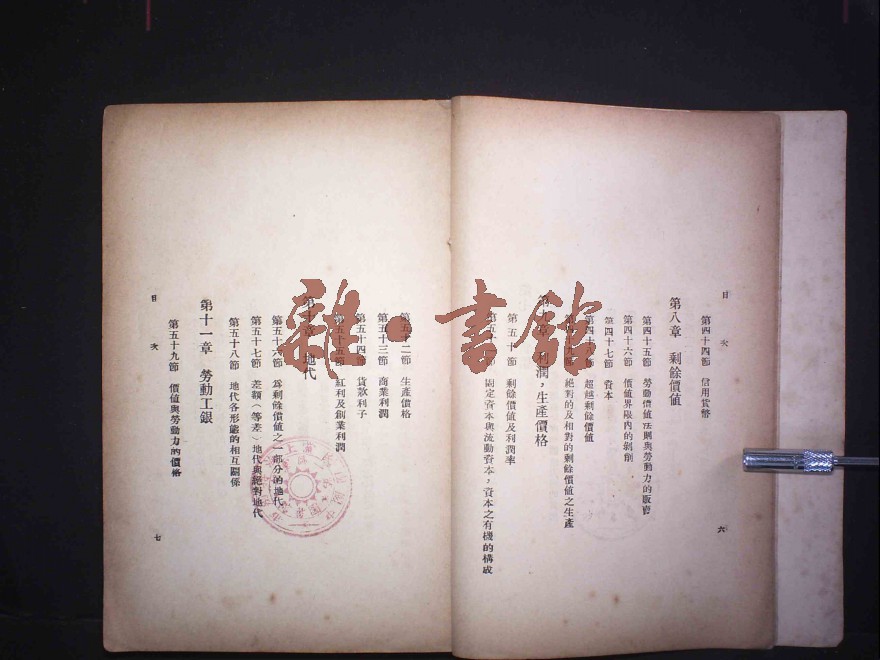 目次
第四十四節 信用貨幣
第八章 剩餘價値
第四十五節 勞動價値法則與勞動力的販賣
第四十六節 價値界限內的剝削
第四十七節 資本
第四十八節 超越剩餘價値
第四十九節 絕對的及相對的剩餘價値之生產
第九章 利潤，生產價格
第五十節 剩餘價値及利潤率
第五十一節 固定資本與流動資本，資本之有機的構成
六
第五十二節 生產價格
第五十三節 商業利潤
第五十四節 貸款利子
第五十五節 紅利及創業利潤
第十章 地代
第五十六節 爲剩餘價値之一部分的地代
第五十七節 差額（等差）地代與絕對地代
第五十八節 地代各形態的相互關係
第十一章 勞動工銀
第五十九節 價値與勞動力的價格
目次
七
雜·書館